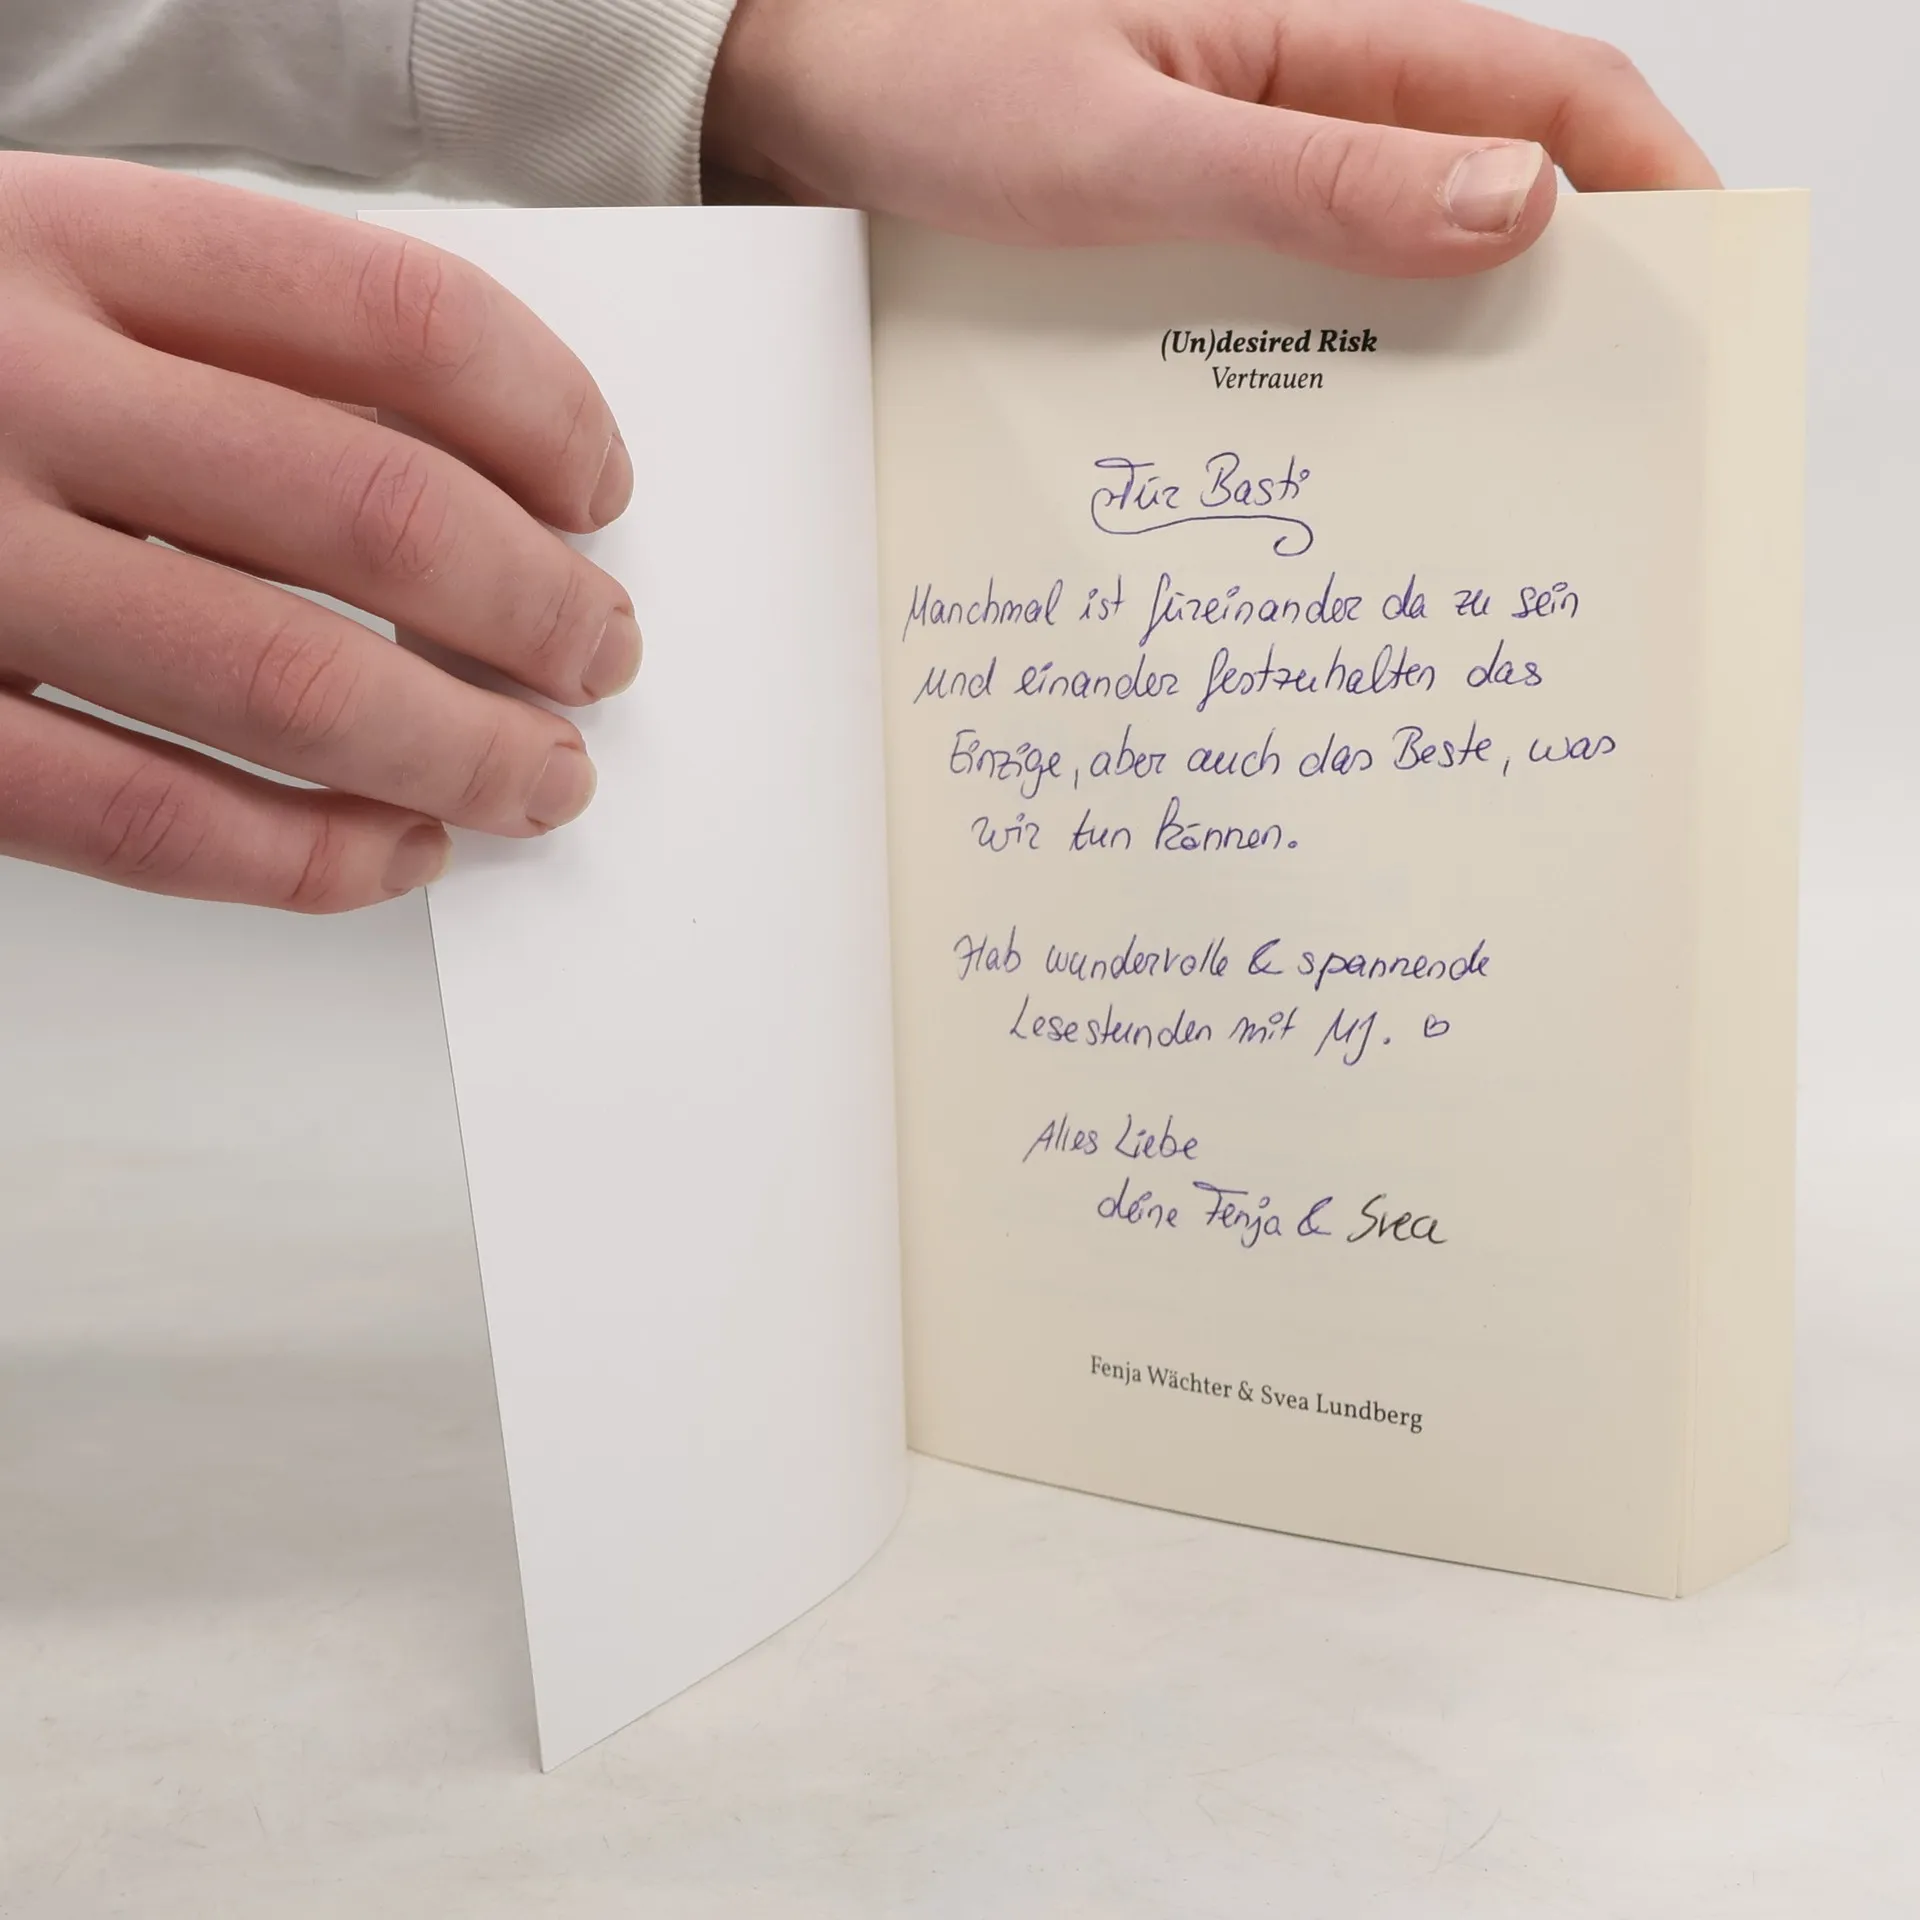 (Un)desired Risk
Vertrauen
Für Basti
Manchmal ist füreinander da zu sein
und einander festzuhalten das
Einzige, aber auch das Beste, was
wir tun können.
Hab wundervolle & spannende
Lesestunden mit MJ. ♡
Alles Liebe
deine Fenja & Svea
Fenja Wächter & Svea Lundberg